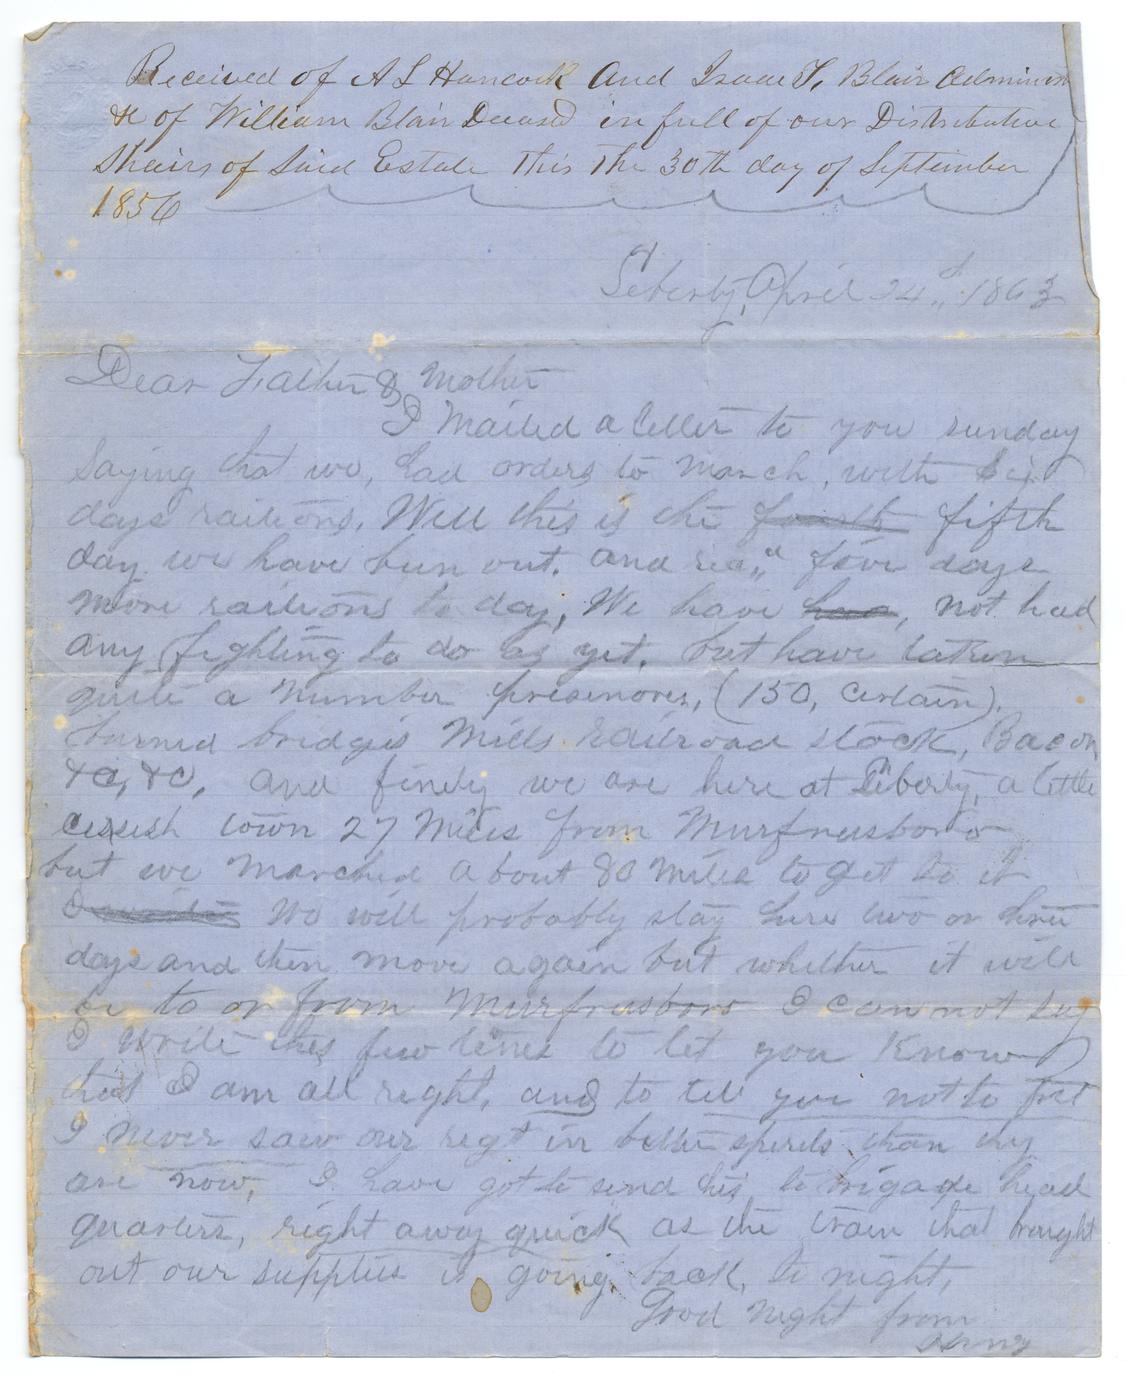 Received of A L Hancock And Isaac T. Blair Adminis
&c of William Blair Deceased in full of our Distributive
Shairs of Said Estate This The 30th day of September
1856
Liberty, April 24th 1863
Dear Father & Mother
I Mailed a letter to you sunday
Saying that we, had orders to march, with Six
days raitions. Well this is the fourth fifth
day we have bun out. and rec'd five days
more raitions to day, We have had, not had
any fighting to do as yet. but have taken
quite a number presinores, (150, certain).
burned bridges Mills railroad stock, Bacon
&c, &c, and finely we are here at Liberty, a little
cesesh town 27 Miles from Murfreesboro
but we marched about 80 miles to get to it
We will probably stay here two or three
days and then move again but whether it will
be to or from Murfreesboro I can not say
I write this few lines to let you Know
that I am all right, and to tell you not to fret
I never saw our regt in better sperits than thy
are now, I have got to send this to brigade head
quarters, right away quick as the train that brought
out our supplies is going back, to night,
Good Night from
Henry